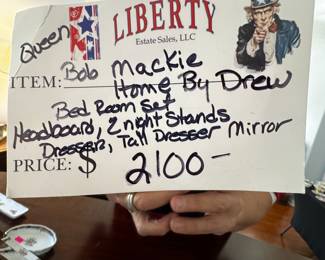 Queen
LIBERTY
Estate Sales, LLC
ITEM: Bob Mackie
Home By Drew
Bed Room Set
Headboard, 2 night Stands
Dressers, Tall Dresser Mirror
PRICE: $ 2100-